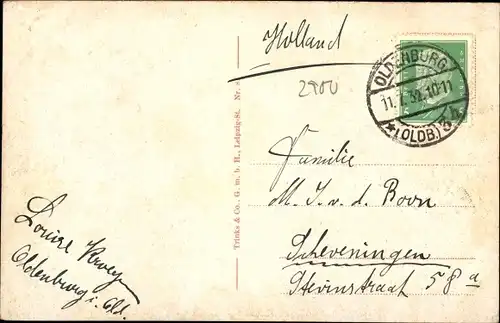 Holland
2900
OLDENBURG
11.7.32.10-11
* (OLDB.) 3
Familie
M. J. v. d. Boon
Scheveningen
Stevinstraat 58a
Trinks & Co. G. m. b. H., Leipzig-St. Nr.
Louise
Oldenburg i. Old.